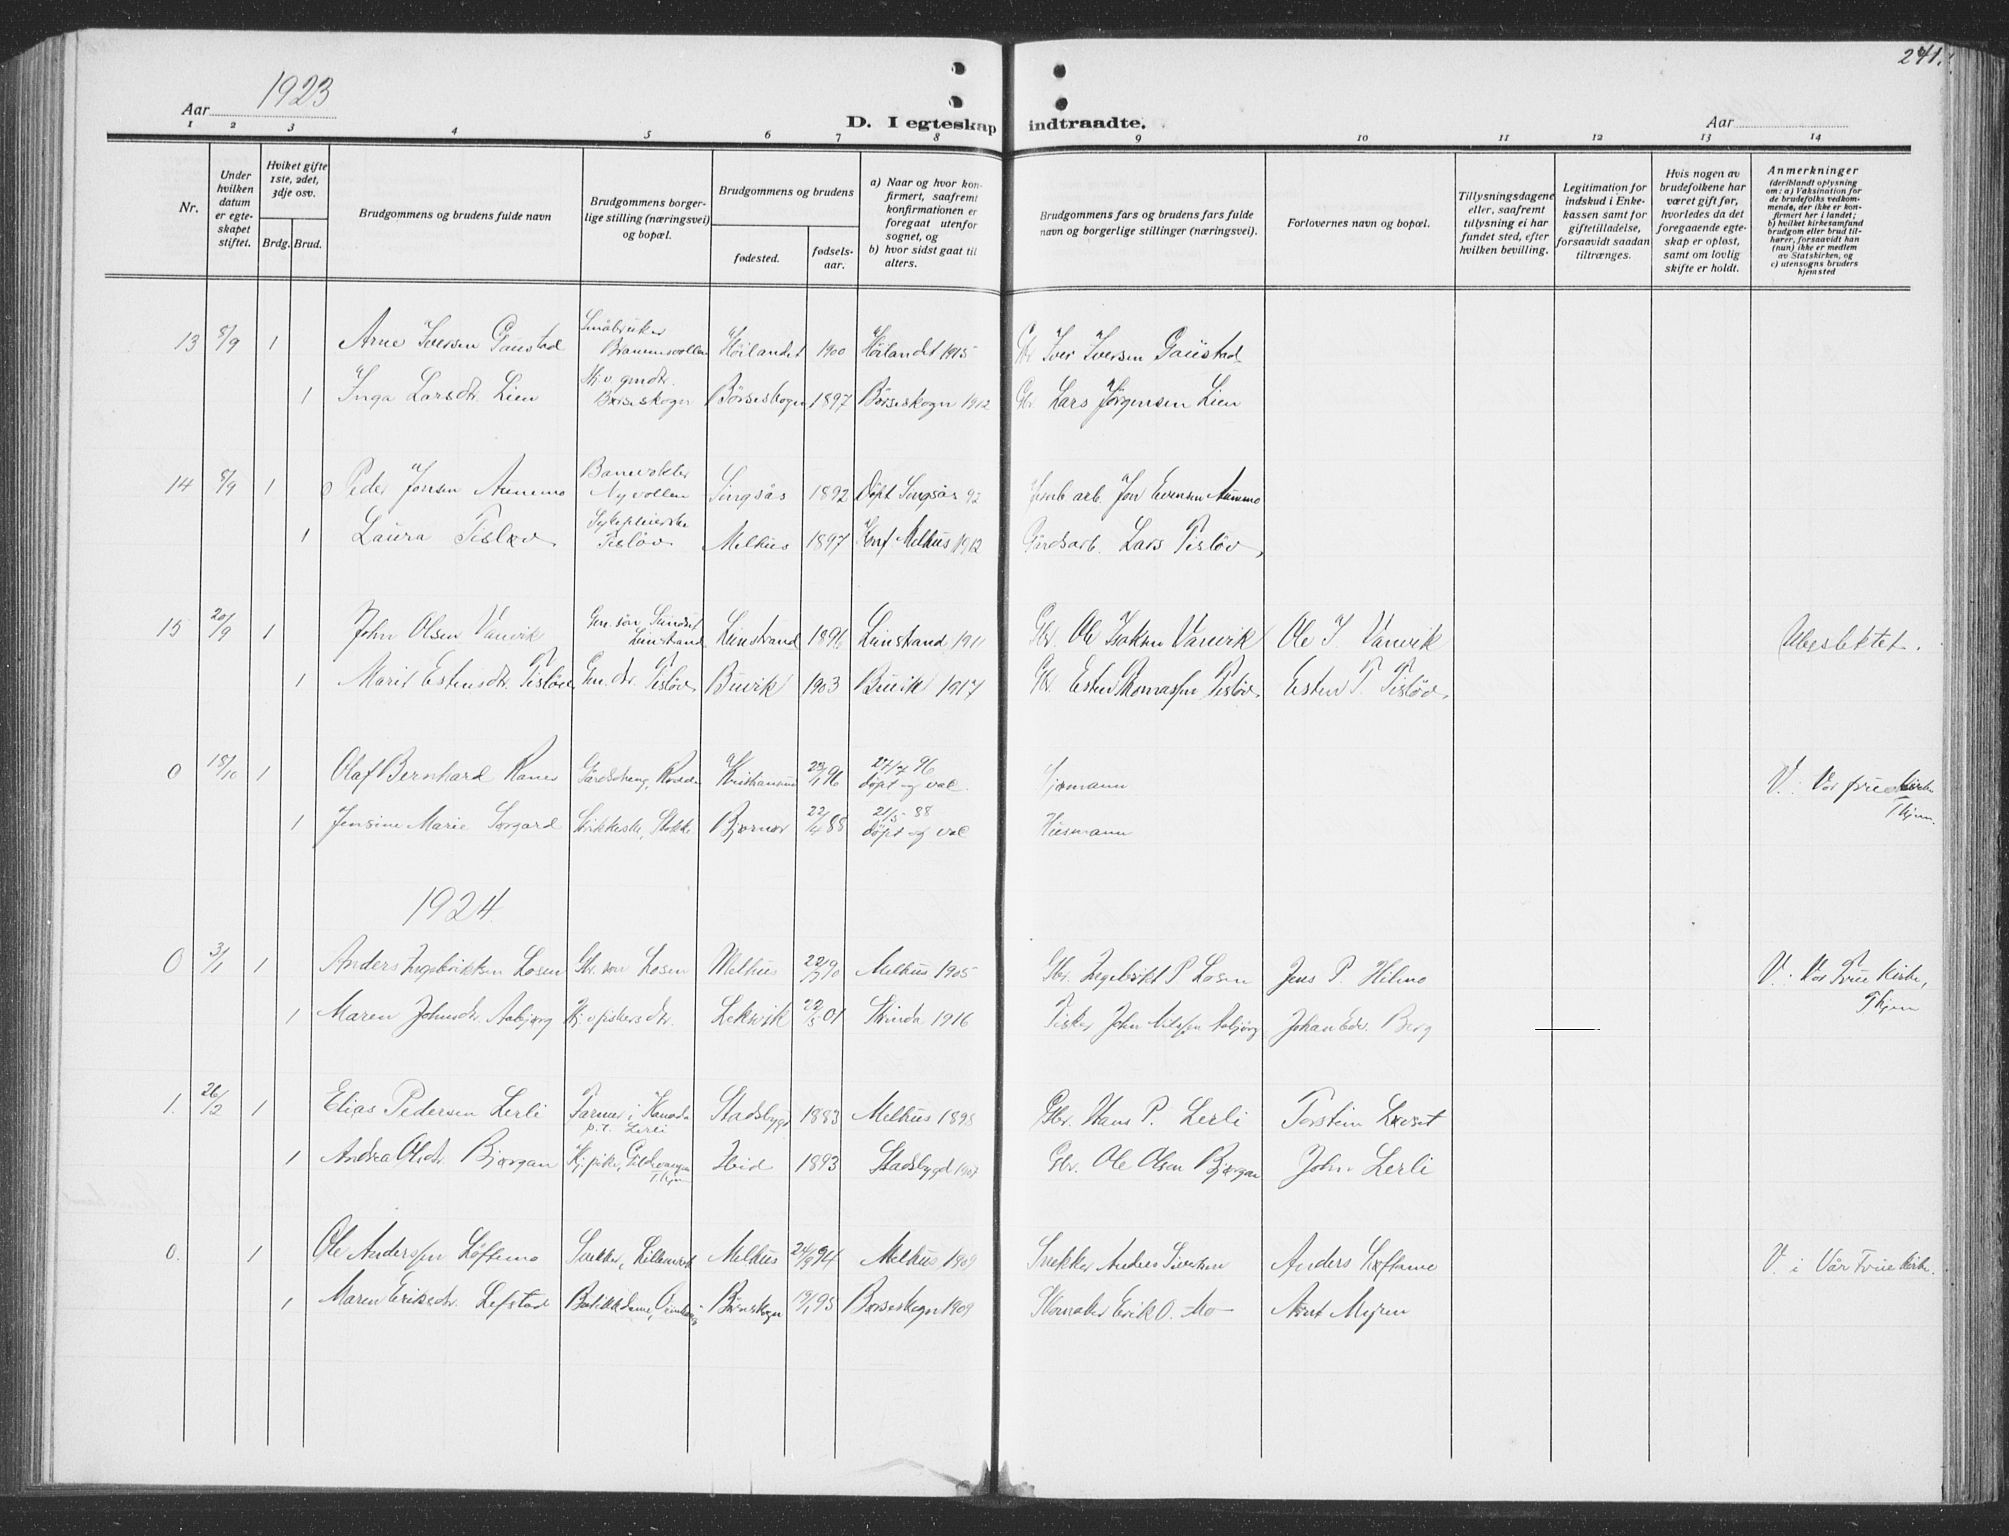 241.
Aar 1923
D. I egteskap indtraadte.
Aar
1 2 3 4 5 6 7 8 9 10 11 12 13 14
Nr.
Under hvilken datum er egteskapet stiftet.
Hvilket gifte 1ste, 2det, 3dje osv.
Brdg. Brud.
Brudgommens og brudens fulde navn
Brudgommens borgerlige stilling (næringsvei) og bopæl.
Brudgommens og brudens
fødested.
fødselsaar.
a) Naar og hvor konfirmert, saafremt konfirmationen er foregaat utenfor sognet, og
b) hvor sidst gaat til alters.
Brudgommens fars og brudens fars fulde navn og borgerlige stillinger (næringsvei).
Forlovernes navn og bopæl.
Tillysningsdagene eller, saafremt tillysning ei har fundet sted, efter hvilken bevilling.
Legitimation for indskud i Enkekassen samt for giftetilladelse, forsaavidt saadan tiltrænges.
Hvis nogen av brudefolkene har været gift før, hvorledes da det foregaaende egteskap er opløst, samt om lovlig skifte er holdt.
Anmerkninger
(deriblandt oplysning om: a) Vaksination for de brudefolks vedkommende, der ikke er konfirmert her i landet; b) hvilket kirkesamfund brudgom eller brud tilhører, forsaavidt han (hun) ikke er medlem av Statskirken, og c) utensogns bruders hjemsted
13 8/9 1 Arne Iversen Gaustad Småbruker Høilandet 1900 Høilandet 1915 Gbr Iver Iversen Gaustad
1 Inga Larsdtr. Lien Børseskogn Børseskogn 1897 Børseskogn 1912 Gbr. Lars Jørgensen Lien
14 8/9 1 Peder Jonsen Aunemo Banevokter Nyvollen Singsås 1892 Døpt Singsås 92 Jernb arb. Jon Evensen Aunemo
1 Laura Tisløv Sykepleierske Tisløv Melhus 1897 Konf Melhus 1912 Gårdsarb. Lars Tisløv
15 20/9 1 John Olsen Vanvik Leinstrand Leinstrand 1896 Leinstrand 1911 Gbr. Ole Isaksen Vanvik Ole I. Vanvik Ubeslektet.
1 Marit Estensdtr. Tisløv Gm. dtr. Tisløv Buvik 1903 Buvik 1917 Gbr. Esten Thomassen Tisløv Esten T. Tisløv
0 18/10 1 Olaf Bernhard Kristiansund 96 døpt og vac. V. Vor frue kirke Thjem.
1 Jensine Marie Sørgard Bjørnør 22/4 88 21/5 88 døpt og vac Husmann
1924.
0 3/1 1 Anders Ingebrigtsen Losen Gbr. søn Losen Melhus Melhus 1905 Gbr. Ingebrikt P. Losen Jens P. Helmo V. Vor Frue Kirke, Thjem
1 Maren Johnsdtr. Aabjørg Hj. v. fiskers dtr. Leksvik 22/5 01 Strinda 1916 Fisker John Nilssen Aabjørg Johan Edv. Berg
1. 26/2 1 Elias Pedersen Lerli Farmer i Kanada p.t. Lerli Stadsbygd 1883 Melhus 1898 Gbr. Hans P. Lerli Torstein Løvset
1 Andrea Olsdtr. Bjørgan Thjem 1893 Stadsbygd 1907 Gbr. Ole Olsen Bjørgan John Lerli
0. 1 Ole Anderssen Løftemo Snekker, Melhus 94 Melhus 1909 Snekker Anders Sivertsen Anders Løftamo V. i Vår Frue Kirke.
1 Maren Eriksdtr. Lefstad Butikkdame, Børseskogn 95 Børseskogn 1909 Erik O. Mo Arnt Myren